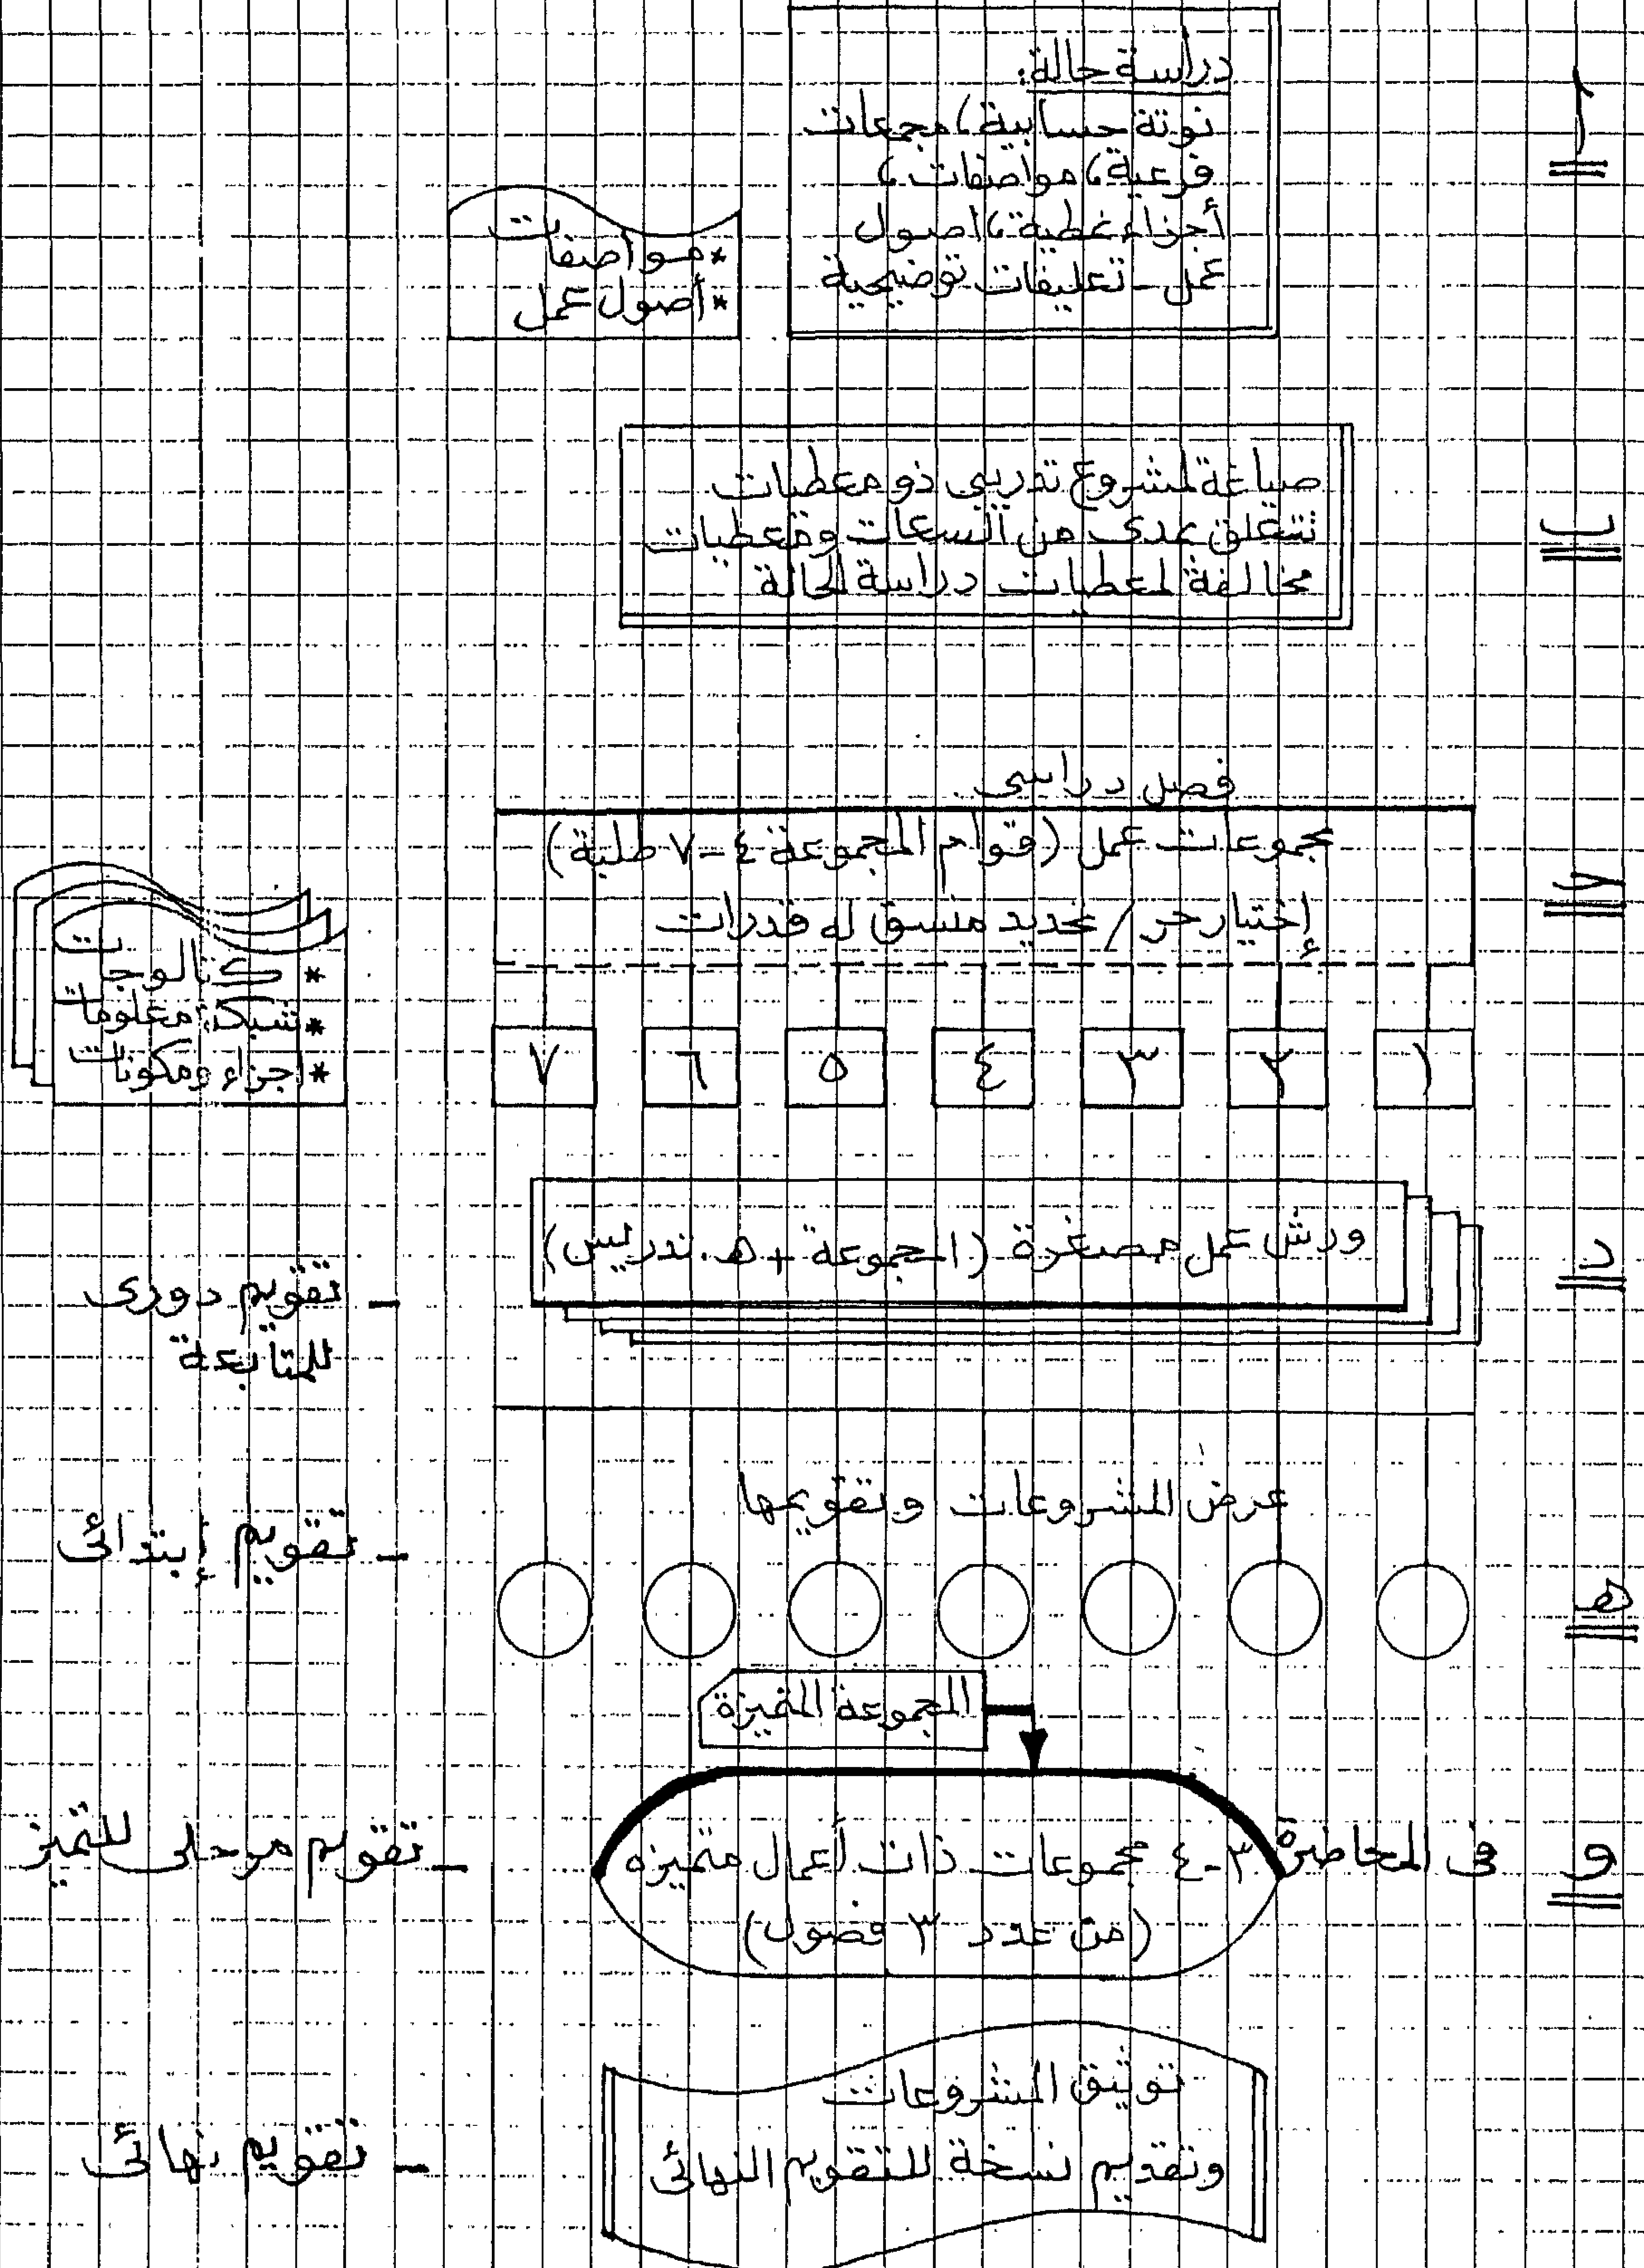 أ
دراسة حالة:
نوتة حسابية، مجمعات
فرعية، مواصفات،
أجزاء نمطية، اصول
عمل - تعليقات توضيحية
*مواصفات
*أصول عمل
ب
صياغة لمشروع تدريبى ذو معطيات
تتعلق بمدى من السعات ومعطيات
مخالفة لمعطيات دراسة الحالة
فصل دراسى
حـ
مجموعات عمل (قوام المجموعة ٤-٧ طلبة)
إختيار حر / تحديد منسق له قدرات
* كتالوجات
* شبكة معلومات
* اجزاء ومكونات
١ ٢ ٣ ٤ ٥ ٦ ٧
د
ورش عمل مصغرة (المجموعة + هـ. تدريس)
- تقويم دورى
للمتابعة
عرض المشروعات وتقويمها
- تقويم إبتدائى
هـ
المجموعة المميزة
و
فى المحاضرة ٣-٤ مجموعات ذات أعمال متميزه
(من عدد ٣ فصول)
- تقويم مرحلى للتميز
توثيق المشروعات
وتقديم نسخة للتقويم النهائى
- تقويم نهائى